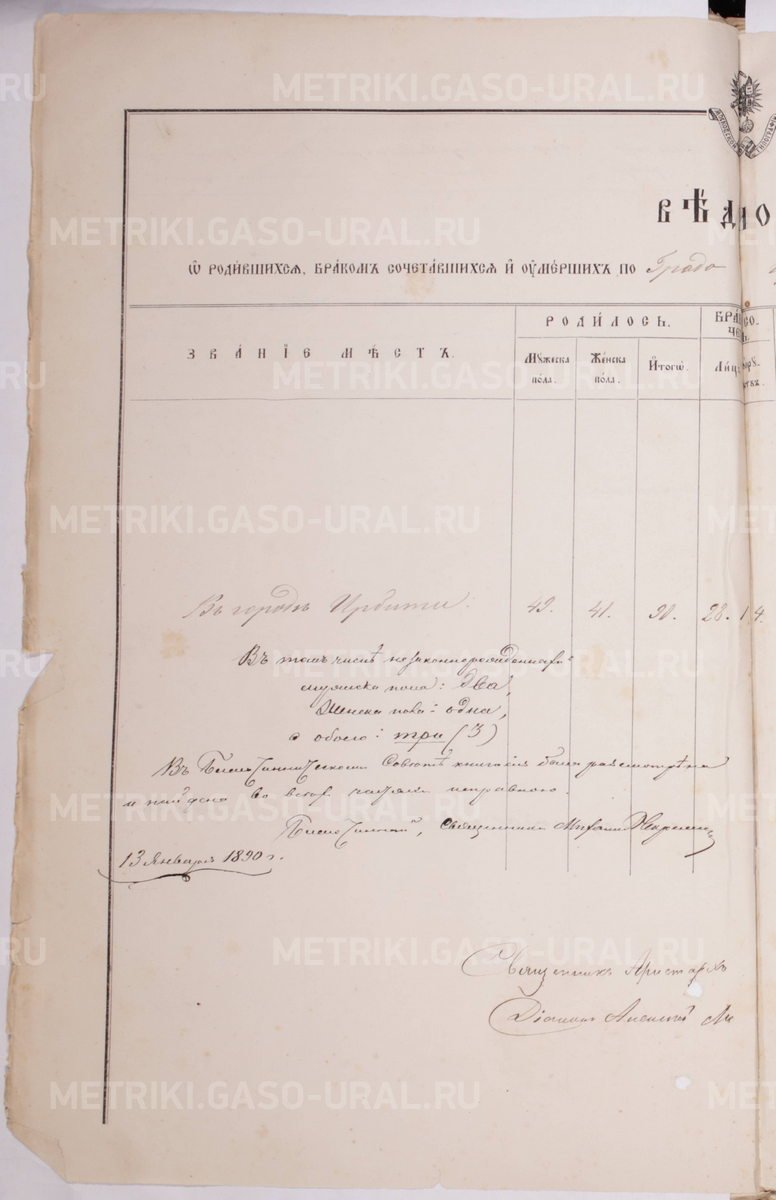 METRIKI.GASO-URAL.RU
СѴНОДАЛЬНОЙ ТИПОГРАФІИ
ВѢДМО
Ѡ РОДИ́ВШИХСѦ, БРА́КОМЪ СОЧЕТА́ВШИХСѦ И҆ ОУ҆МЕ́РШИХЪ ПО Градо
ЗВА́НІЕ МѢ́СТЪ.
РОДИ́ЛОСЬ.
Мꙋ́жеска по́ла.
Же́нска по́ла.
И҆тогѡ̀.
БРА́
СО
ЧЕ
Ли́цъ
Въ городѣ Ирбити:
49.
41.
90.
28.
14.
Въ томъ числѣ незаконнорожденныхъ:
мужска пола: два,
женска пола: одна,
а обоего: три (3)
Въ Благочинническомъ Совѣтѣ книга сія была разсмотрѣна
и найдена во всѣхъ частяхъ исправною.
Благочинный, Священникъ Михаилъ
13 Января 1890 г.
Священникъ Аристархъ
Діаконъ